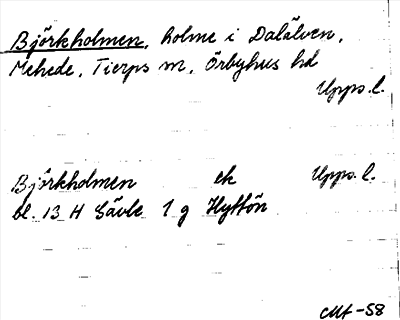 Björkholmen, holme i Dalälven,
Mehede, Tierps sn, Örbyhus hd
Upps. l.
Björkholmen ek Upps. l.
bl. 13 H Gävle 1 g Hyttön
-58